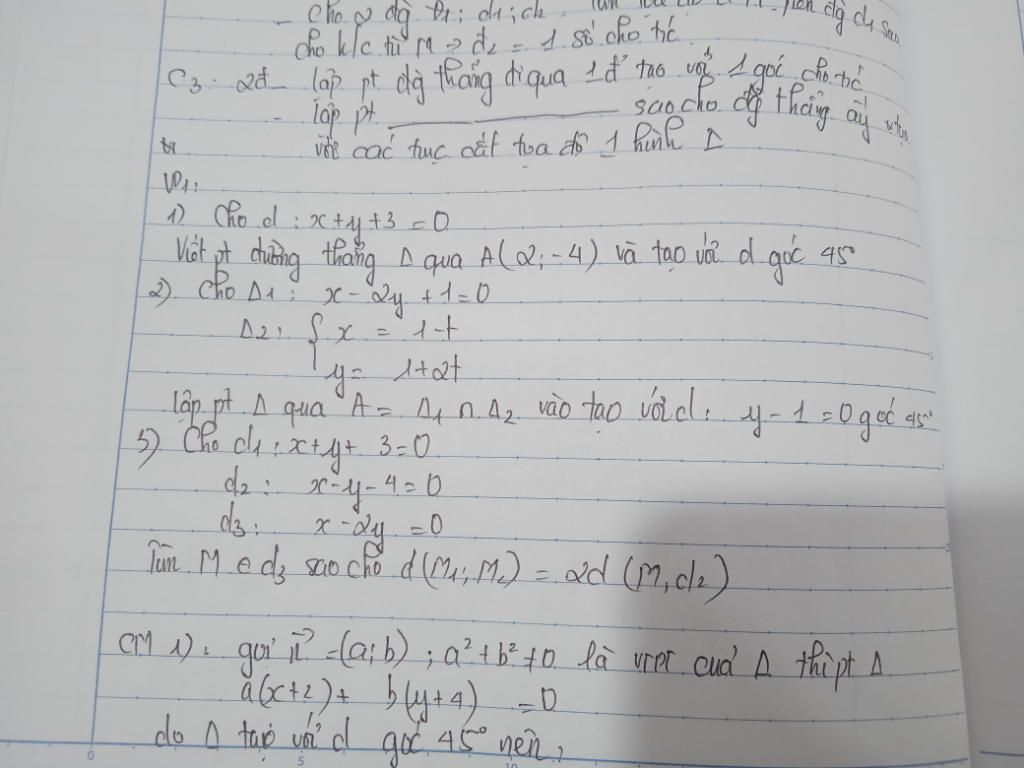 - Cho 2 đg
cho k/c từ M → d2 = 1 số cho trc
C3: 2đ - lập pt đg thẳng đi qua 1 đ' tạo với 1 góc cho trc
- lập pt ________ sao cho đg thẳng ấy
với các trục cắt tọa độ 1 hình Δ
VD1:
1) Cho d : x+y+3=0
Viết pt đường thẳng Δ qua A(2;-4) và tạo với d góc 45°
2) Cho Δ1: x-2y+1=0
Δ2: { x = 1-t
y = 1+2t
lập pt Δ qua A = Δ1 ∩ Δ2 vào tạo với d: y-1=0 góc 45°
3) Cho d1: x+y+3=0
d2: x-y-4=0
d3: x-2y=0
Tìm M ∈ d3 sao cho d(M1; M2) = 2d (M,d2)
CM 1): gọi n⃗ =(a;b) ; a²+b²≠0 là vtpt cuả Δ thì pt Δ
a(x+2)+ b(y+4) =0
do Δ tạo với d góc 45° nên:
0 5 10